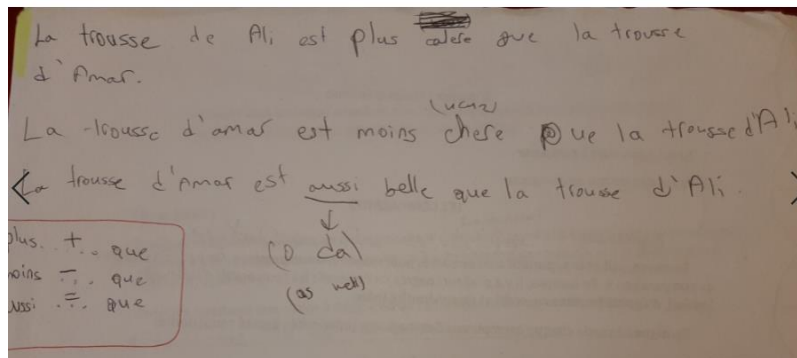 La trousse de Ali est plus que la trousse
d'Amar.
(ucuz)
La trousse d'amar est moins chere que la trousse d'Ali
La trousse d'Amar est aussi belle que la trousse d'Ali.
plus. +.. que
moins -.. que
aussi .=. que
(o da)
(as well)